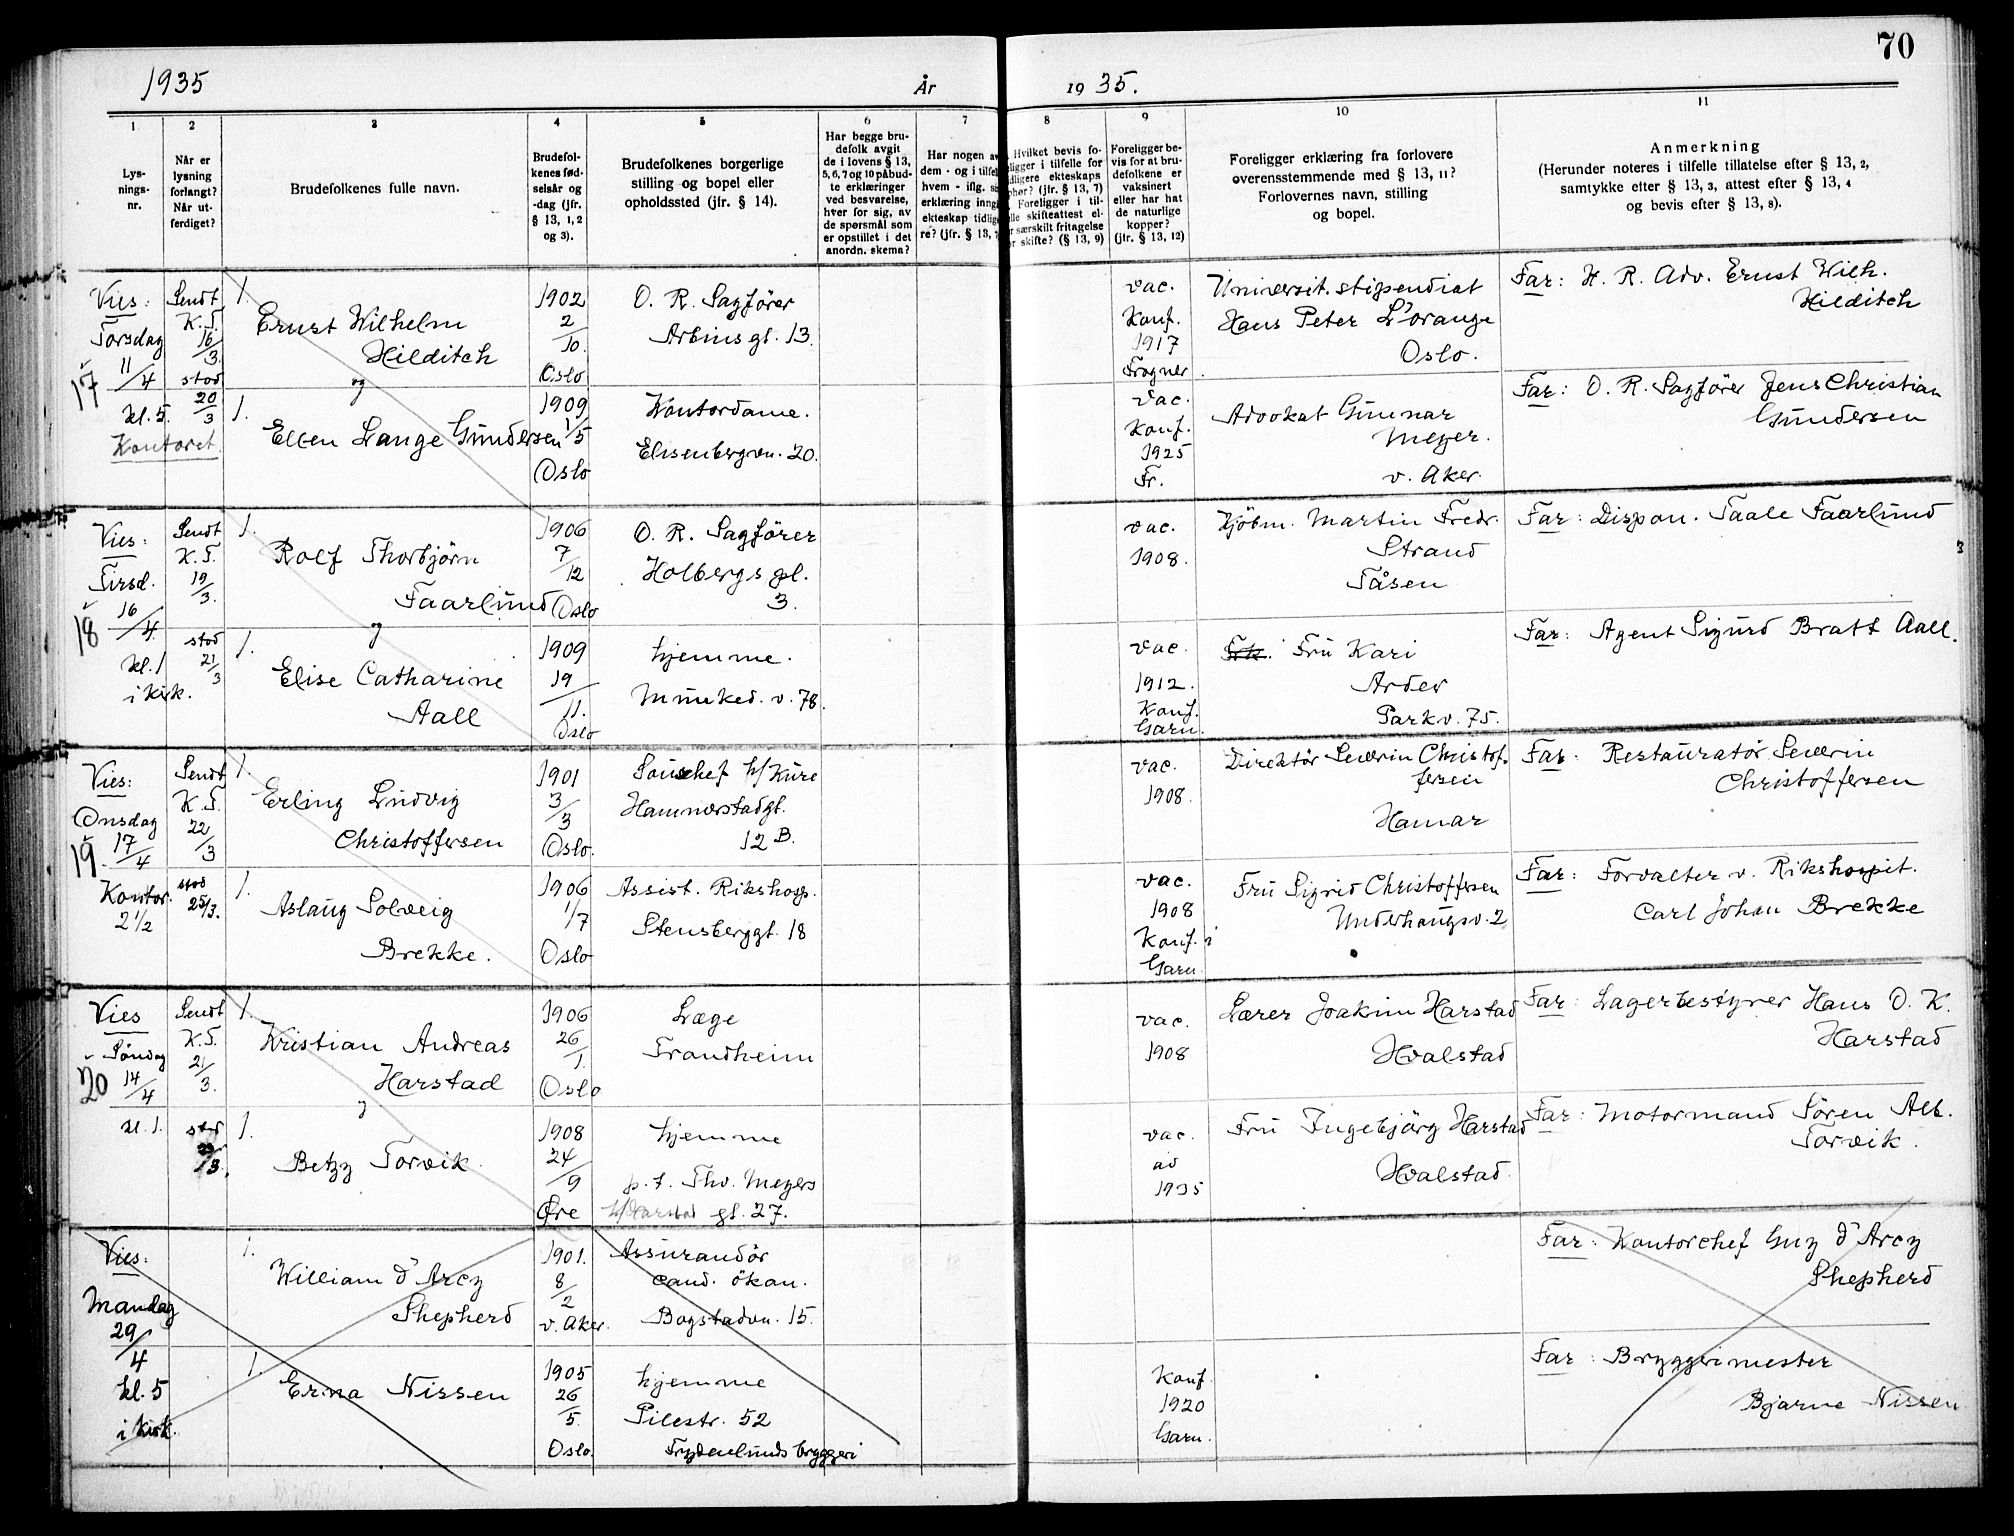 70
1935
År
19 35.
1
2
3
4
5
6
7
8
9
10
11
Lys-
nings-
nr.
Når er
lysning
forlangt?
Når ut-
ferdiget?
Brudefolkenes fulle navn.
Brudefol-
kenes fød-
selsår og
-dag (jfr.
§ 13, 1, 2
og 3).
Brudefolkenes borgerlige
stilling og bopel eller
opholdssted (jfr. § 14).
Har begge bru-
defolk avgit
de i lovens § 13,
5, 6, 7 og 10 påbud-
te erklæringer
ved besvarelse,
hver for sig, av
de spørsmål som
er opstillet i det
anordn. skema?
Har nogen av
dem - og i tilfel
hvem - iflg. si
erklæring inngå
ekteskap tidlige
re? (jfr. § 13, 7
Hvilket bevis fo-
ligger i tilfelle for
idligere ekteskaps
phør? (jfr. § 13, 7)
Foreligger i til-
lle skifteattest el-
r særskilt fritagelse
or skifte? (§ 13, 9)
Foreligger be-
vis for at bru-
defolkene er
vaksinert
eller har hat
de naturlige
kopper?
(jfr. § 13, 12)
Foreligger erklæring fra forlovere
overensstemmende med § 13, 11?
Forlovernes navn, stilling
og bopel.
Anmerkning
(Herunder noteres i tilfelle tillatelse efter § 13, 2,
samtykke efter § 13, 3, attest efter § 13, 4
og bevis efter § 13, 8).
17
Vies:
Torsdag
11/4
kl. 5
Kontoret
Sendt
K.T.
16/3
stod
20/3
1.
Ernst Wilhelm
Hilditch
og
1.
Ellen Lange Gundersen
1902
2/10.
Oslo
1909
1/5
Oslo
O. R. Sagfører
Arbinsgt. 13.
Kontordame.
Elisenbergvn. 20.
vac.
Konf.
1917
Frogner.
vac.
Konf.
1925
Fr.
Universit. stipendiat
Hans Peter L'orange
Oslo.
Advokat Gunnar
Meyer.
v. Aker.
Far: H. R. Adv. Ernst Wilh.
Hilditch
Far: O. R. Sagfører Jens Christian
Gundersen
18
Vies:
Tirsd.
16/4
kl. 1
i kirk.
Sendt
K.T.
19/3.
stod
21/3
1.
Rolf Thorbjørn
Faarlund
og
1.
Elise Catharine
Aall
1906
7/12
Oslo
1909
19/11.
Oslo
O. R. Sagfører
Holbergs pl.
3.
hjemme.
Munked. v. 78.
vac.
1908.
vac.
1912.
Konf.
Garn.
Kjøbm. Martin Fredr.
Strand
Tåsen
Frk. Fru Kari
Arder
Parkv. 75.
Far: Dispon. Taale Faarlund
3
Far: Agent Sigurd Bratt Aall.
19
Vies:
Onsdag
17/4
Kontor.
2 1/2
Sendt
K.T.
22/3
stod
25/3.
1.
Erling Ludvig
Christoffersen
1.
Aslaug Solveig
Brekke.
1901
3/3
Oslo.
1906
1/7
Oslo
Souschef h/Kure
Hammerstadgt.
12 B.
Assist. Rikshosp.
Stensberggt. 18
vac.
1908.
vac.
1908
Konf. i
Garn
Direktør Severin Christof-
fersen
Hamar
Fru Sigrid Christoffersen
Underhaugsv. 2
Far: Restauratør Severin
Christoffersen
Far: Forvalter v. Rikshospit.
Carl Johan Brekke
20
Vies
Søndag
14/4
kl. 1.
Sendt
K.T.
21/3.
stod
23/3.
1.
Kristian Andreas
Harstad
og
1.
Betzy Torvik.
1906
26/1.
Oslo
1908
24/9
Øre
Læge
Trondheim
hjemme
p.t. Thv. Meyers
h/Harstad gt. 27.
vac.
1908
vac.
av
1935
Lærer Joakim Harstad
Hvalstad
Fru Ingebjørg Harstad
Hvalstad
Far: Lagerbestyrer Hans O. K.
Harstad
Far: Motormand Søren Alb.
Torvik.
Vies:
Mandag
29/4
kl. 5
i kirk.
1.
William d'Arcy
Shepherd
1.
Erna Nissen
1901.
8/2
v. Aker.
1905
26/5.
Oslo.
Assurandør
cand. økon.
Bogstadvn. 15.
hjemme
Pilestr. 52
Frydenlunds bryggeri
Konf.
1920
Garn.
Far: Kontorchef Guy d'Arcy
Shepherd
Far: Bryggerimester
Bjarne Nissen